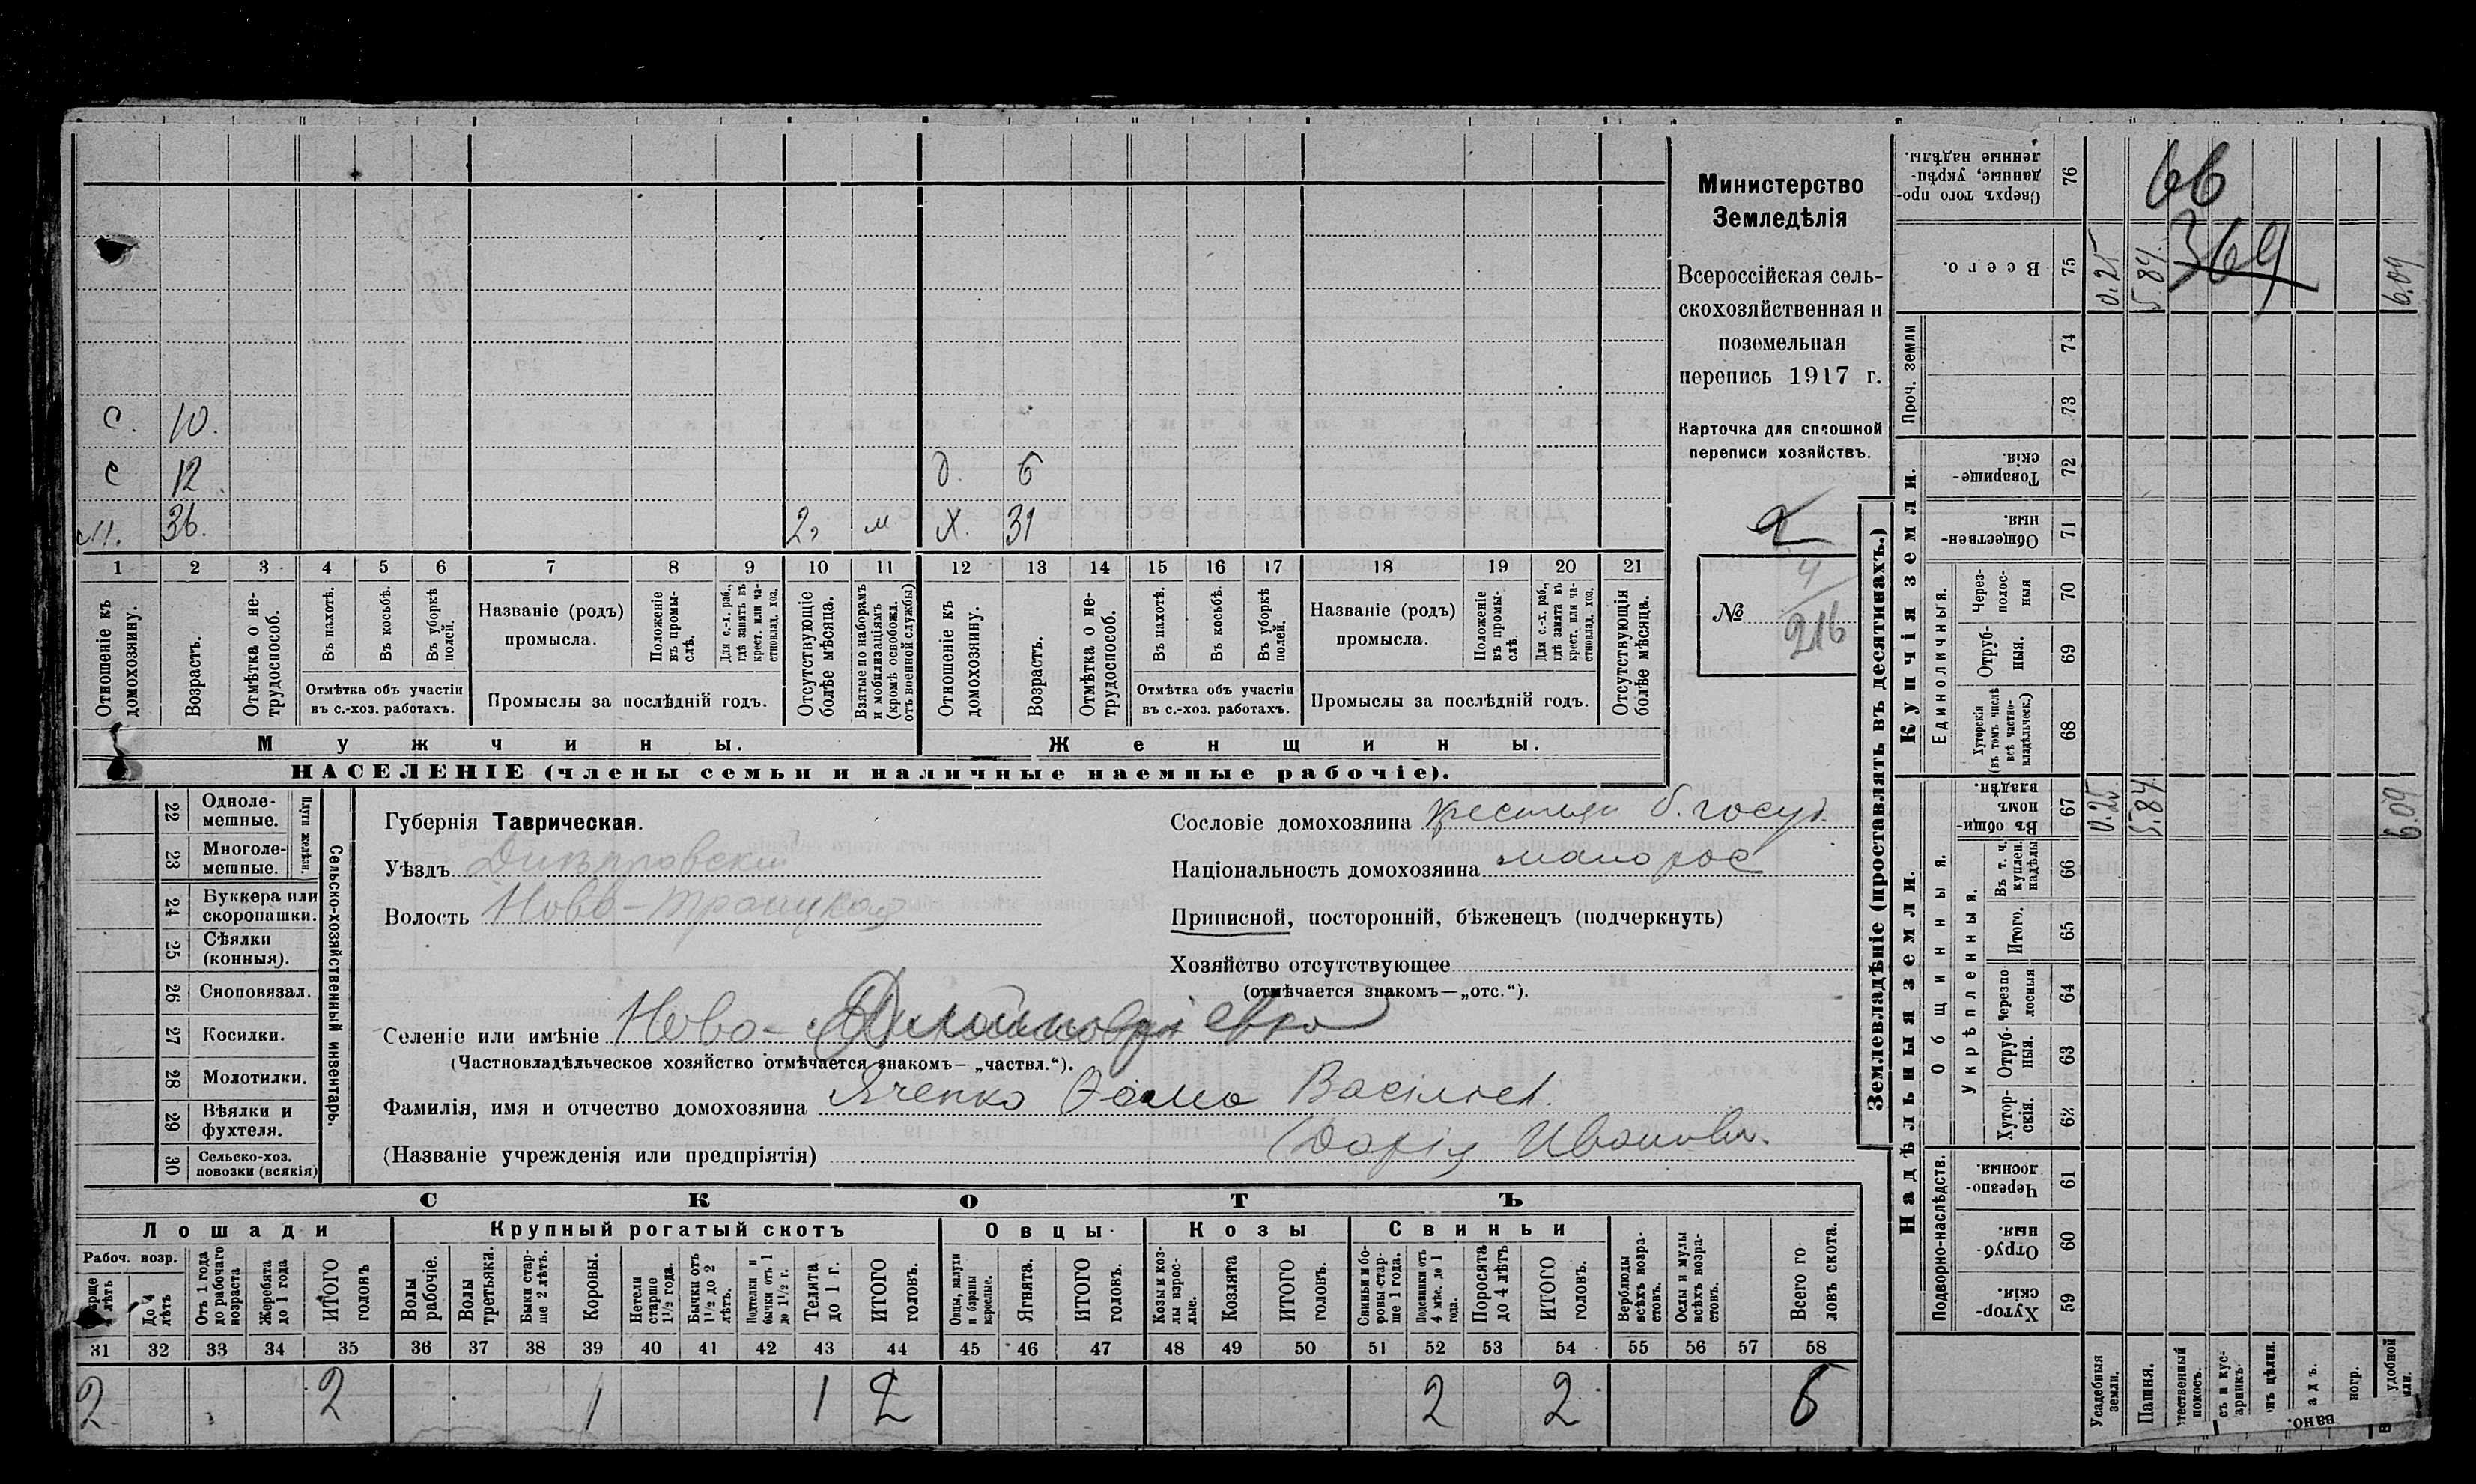 С. 10.
С 12 д. 6
М. 36. 2э м Х. 31
1 2 3 4 5 6 7 8 9 10 11 12 13 14 15 16 17 18 19 20 21
Отношеніе къ домохозяину.
Возрастъ.
Отмѣтка о не-трудоспособ.
Въ пахотѣ.
Въ косьбѣ.
Въ уборкѣ полей.
Отмѣтка объ участіи
въ с.-хоз. работахъ.
Названіе (родъ)
промысла.
Положеніе въ промы-слѣ.
Для с.-х. раб., гдѣ занятъ въ крест. или ча-стновлад. хоз.
Промыслы за послѣдній годъ.
Отсутствующіе болѣе мѣсяца.
Взятые по наборамъ и мобилизаціямъ (кромѣ освобожд. отъ военной службы)
Отношеніе къ домохозяину.
Возрастъ.
Отмѣтка о не-трудоспособ.
Въ пахотѣ.
Въ косьбѣ.
Въ уборкѣ полей.
Отмѣтка объ участіи
въ с.-хоз. работахъ.
Названіе (родъ)
промысла.
Положеніе въ промы-слѣ.
Для с.-х. раб., гдѣ занята въ крест. или ча-стновлад. хоз.
Промыслы за послѣдній годъ.
Отсутствующія болѣе мѣсяца.
Мужчины.
Женщины.
НАСЕЛЕНІЕ (члены семьи и наличные наемные рабочіе).
Министерство
Земледѣлія
Всероссійская сель-
скохозяйственная и
поземельная
перепись 1917 г.
Карточка для сплошной
переписи хозяйствъ.
2
№ 4
216
Сельско-хозяйственный инвентарь.
Плуги желѣзн.
22 Одноле-
мешные.
23 Многоле-
мешные.
24 Буккера или
скоропашки.
25 Сѣялки
(конныя).
26 Сноповязал.
27 Косилки.
28 Молотилки.
29 Вѣялки и
фухтеля.
30 Сельско-хоз.
повозки (всякія)
Губернія Таврическая.
Уѣздъ Днѣпровскій
Волость Ново-Троицкая
Сословіе домохозяина крестьян б. госуд.
Національность домохозяина малорос
Приписной, посторонній, бѣженецъ (подчеркнуть)
Хозяйство отсутствующее
(отмѣчается знакомъ—„отс.“).
Селеніе или имѣніе Ново-
(Частновладѣльческое хозяйство отмѣчается знакомъ—„частвл.“).
Фамилія, имя и отчество домохозяина Яченко Ѳома Васільев.
(Названіе учрежденія или предпріятія) Дарія Иванов.
СКОТЪ
Лошади
Крупный рогатый скотъ
Овцы
Козы
Свиньи
Рабоч. возр.
До 4 лѣтъ
Отъ 1 года до рабочаго возраста
Жеребята до 1 года
ИТОГО головъ
Волы рабочіе.
Волы третьяки.
Быки стар-ше 2 лѣтъ.
Коровы.
Нетели старше 1½ года.
Бычки отъ 1½ до 2 лѣтъ.
Подтелки и бычки отъ 1 до 1½ г.
Телята до 1 г.
ИТОГО головъ.
Овцы, валухи и бараны взрослые.
Ягнята.
ИТОГО головъ.
Козы и коз-лы взрос-лые.
Козлята
ИТОГО головъ.
Свиньи и бо-ровы стар-ше 1 года.
Подсвинки отъ 4 мѣс. до 1 года.
Поросята до 4 лѣтъ
ИТОГО головъ.
Верблюды всѣхъ возра-стовъ.
Ослы и мулы всѣхъ возра-стовъ.
Всего го ловъ скота.
31 32 33 34 35 36 37 38 39 40 41 42 43 44 45 46 47 48 49 50 51 52 53 54 55 56 57 58
2 2 1 1 2 2 2 6
Землевладѣніе (проставлять въ десятинахъ.)
Надѣльныя земли.
Купчія земли.
Проч. земли
Сверхъ того про-данные, укрѣп-ленные надѣлы. 76
66
Всего. 75 0.25 5.84. 369 6.09
74
73
Товарище-скія. 72
Обществен-ныя. 71
Единоличныя.
Через-полос-ныя 70
Отруб-ныя. 69
Хуторскія (въ томъ числѣ всѣ частно-владѣльческ.) 68
Въ общин-номъ владѣн. 67 0.25 5.84. 6.09
Общинныя.
Укрѣпленныя.
Въ т. ч. куплен. надѣлы 66
Итого. 65
Черезпо-лосныя 64
Отруб-ныя. 63
Хутор-скія. 62
Подворно-наслѣдств.
Черезпо-лосныя. 61
Отруб-ныя. 60
Хутор-скія. 59
Усадебныя земли.
Пашня.